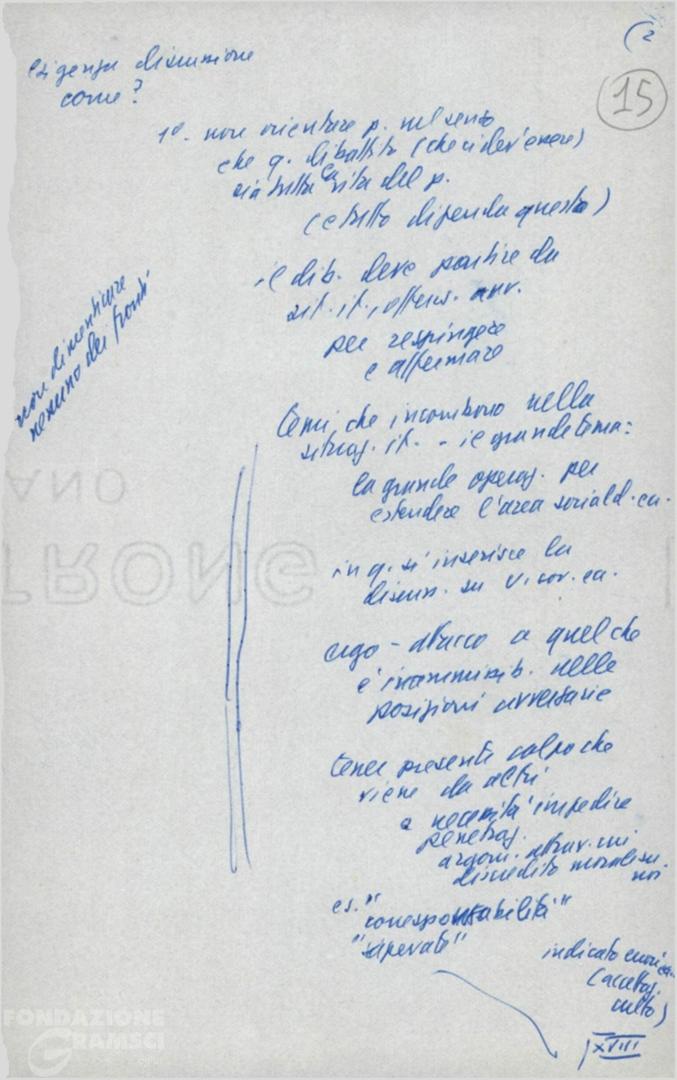 (2
15
esigenza discussione
come?
1°. non orientare p. nel senso
che q. dibattito (che ci dev'essere)
sia tutta la vita del p.
(e tutto dipenda questo)
il dib. deve partire da
sit. it., offens. avv.
per respingere
e affermare
non dimenticare
nessuno dei fronti
temi che incombono nella
situaz. it. - il grande tema:
la grande operaz. per
estendere l'area sociald. ca.
in q. si inserisce la
discuss. su
ergo - attacco a quel che
è inammissib. nelle
posizioni avversarie
tener presente colpo che
viene da altri
e necessità impedire
penetraz.
argom. attrav. cui
discredito morale su
noi
es. "corresponsabilità"
"superato"
indicato
(accettaz.
culto)
XVIII
ANO
TRONG
FONDAZIONE
GRAMSCI